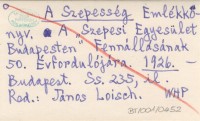 A Szepesség Emlékkö-
nyv. A „Szepesi Egyesület
Budapesten" Fennállásának
50. Évfordulójára. 1926. –
Budapest. Ss. 235, il
Red.: János Loisch. WHP